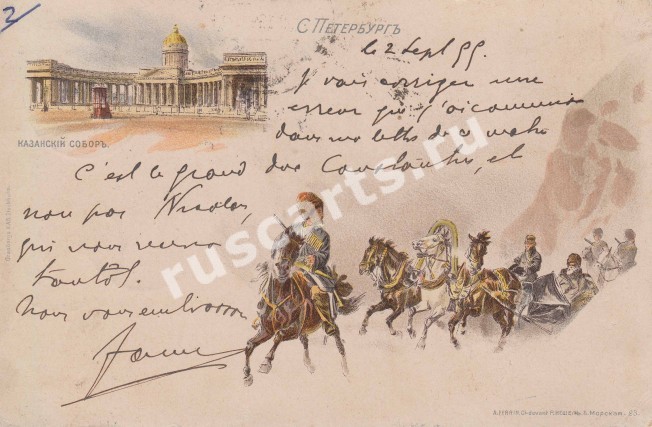 2
С ПЕТЕРБУРГЪ
le 2 Sept 99.
Je vais corriger une
erreur que j'ai commise
dans ma lettre de ce matin
КАЗАНСКІЙ СОБОРЪ.
C'est le grand duc Constantin, et
non pas Nicolas,
qui nous reçoit
tantôt.
Nous vous embrassons
ruscarts.ru